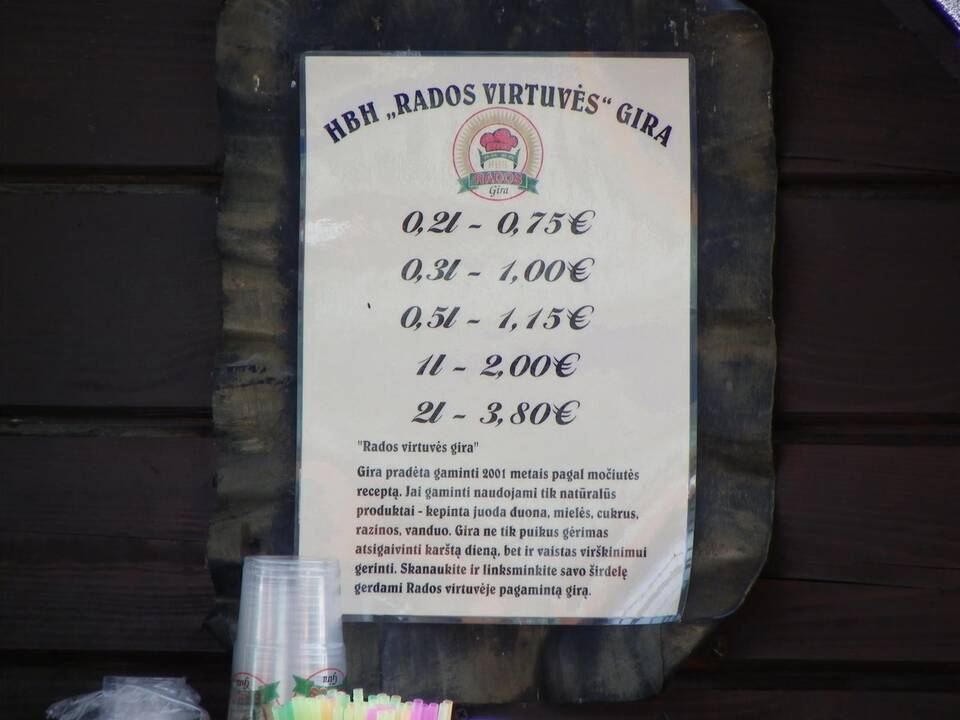 HBH „RADOS VIRTUVĖS“ GIRA
HBH
RADOS
Gira
0,2l - 0,75€
0,3l - 1,00€
0,5l - 1,15€
1l - 2,00€
2l - 3,80€
"Rados virtuvės gira"
Gira pradėta gaminti 2001 metais pagal močiutės
receptą. Jai gaminti naudojami tik natūralūs
produktai - kepinta juoda duona, mielės, cukrus,
razinos, vanduo. Gira ne tik puikus gėrimas
atsigaivinti karštą dieną, bet ir vaistas virškinimui
gerinti. Skanaukite ir linksminkite savo širdelę
gerdami Rados virtuvėje pagamintą girą.